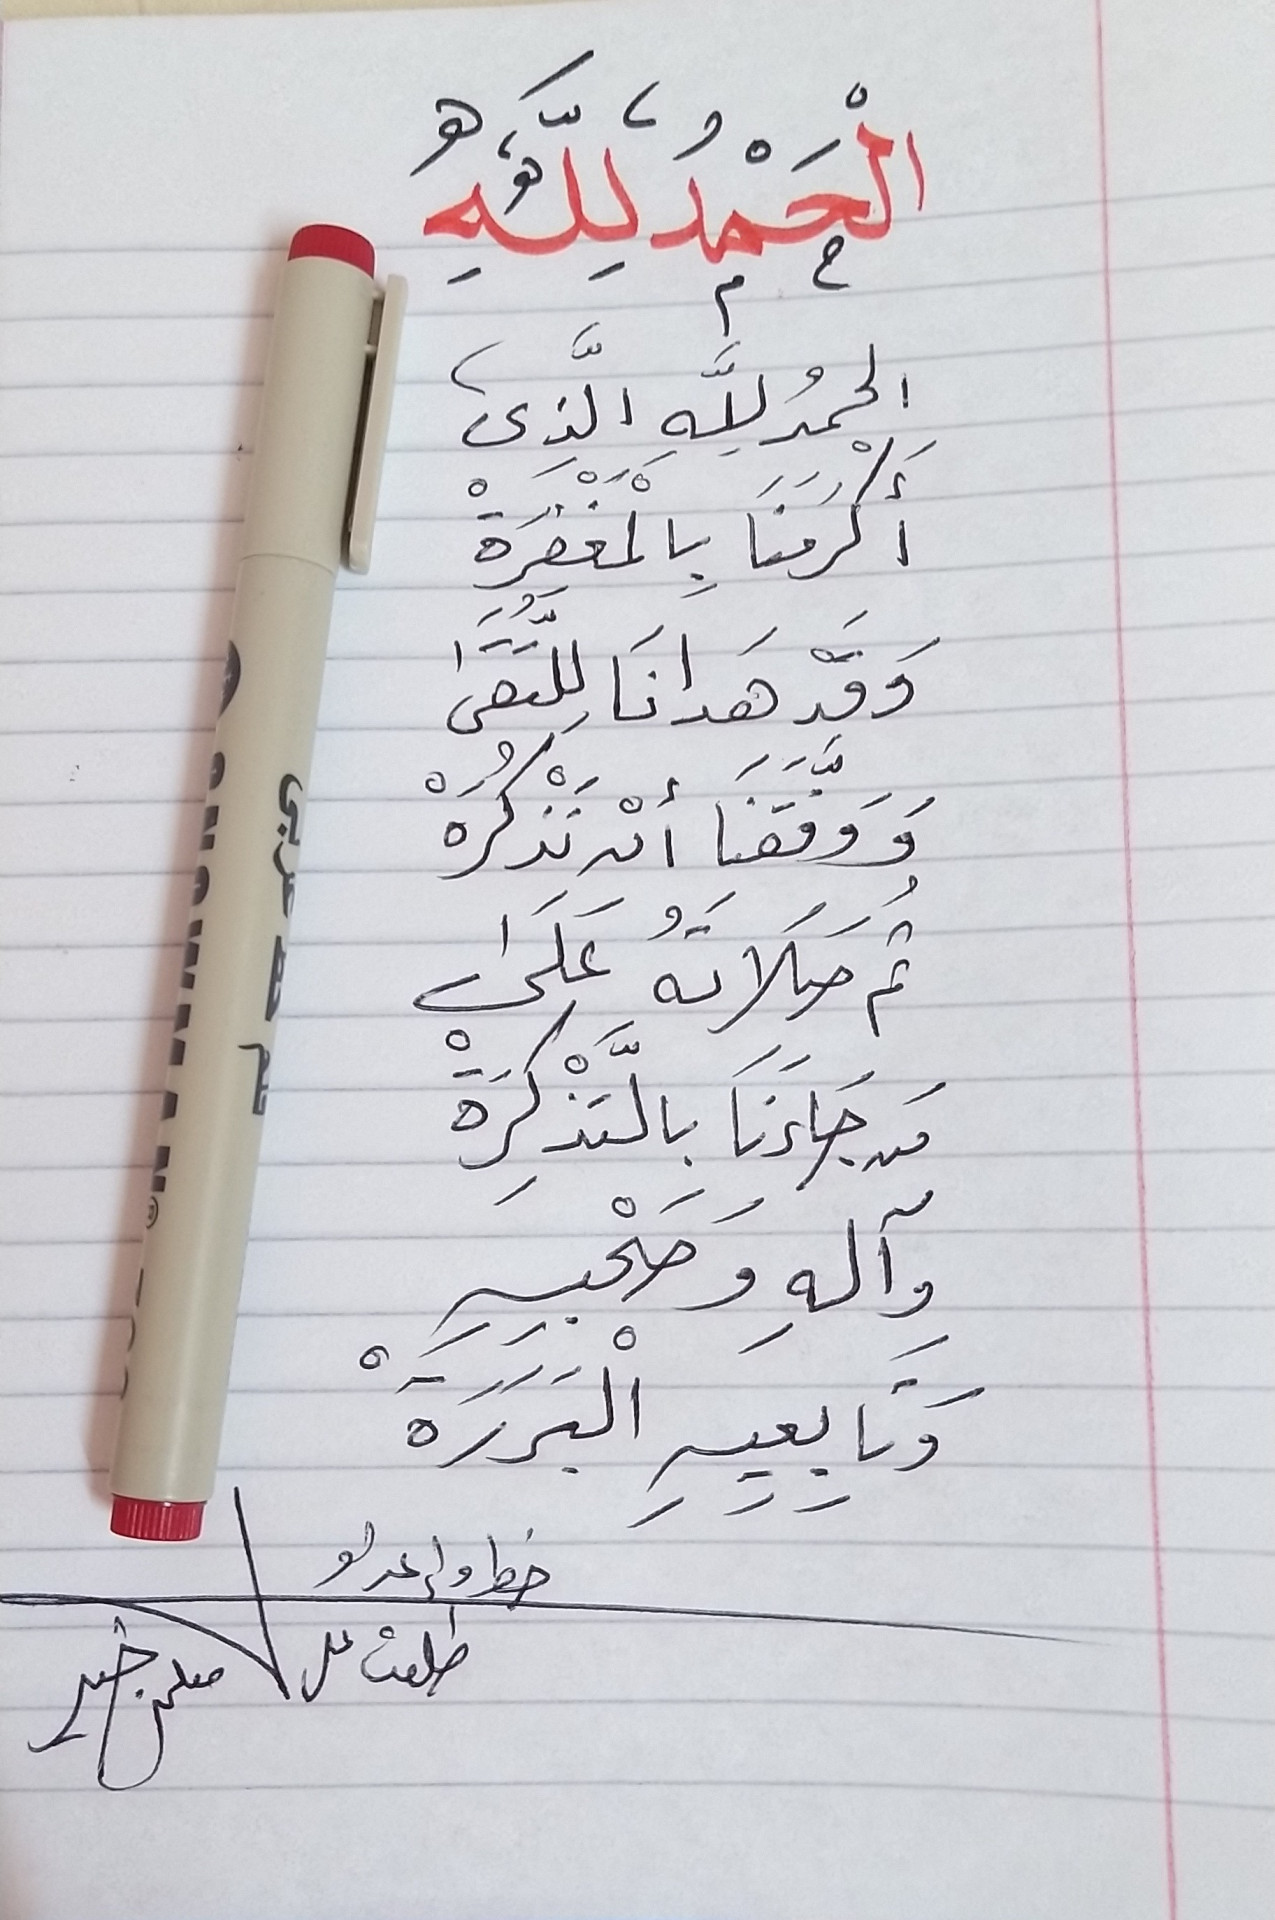 الْحَمْدُ لِلَّهِ
الحمدُ لِلَّهِ الَّذِى
أَكْرَمَنَا بِالْمَغْفِرَةْ
وَقَدْ هَدَانَا لِلتُّقَىٰ
وَوَفَّقَنَا أَنْ نَذْكُرَهْ
ثُم صَلَاتَهُ عَلَىٰ
مَن جَاءَنَا بِالتَّذْكِرَةْ
وَآلهِ وَصَحْبِهِ
وَتَابِعِيهِ الْبَرَرَةْ
خط
قلم خط عربى
SNOWMAN®